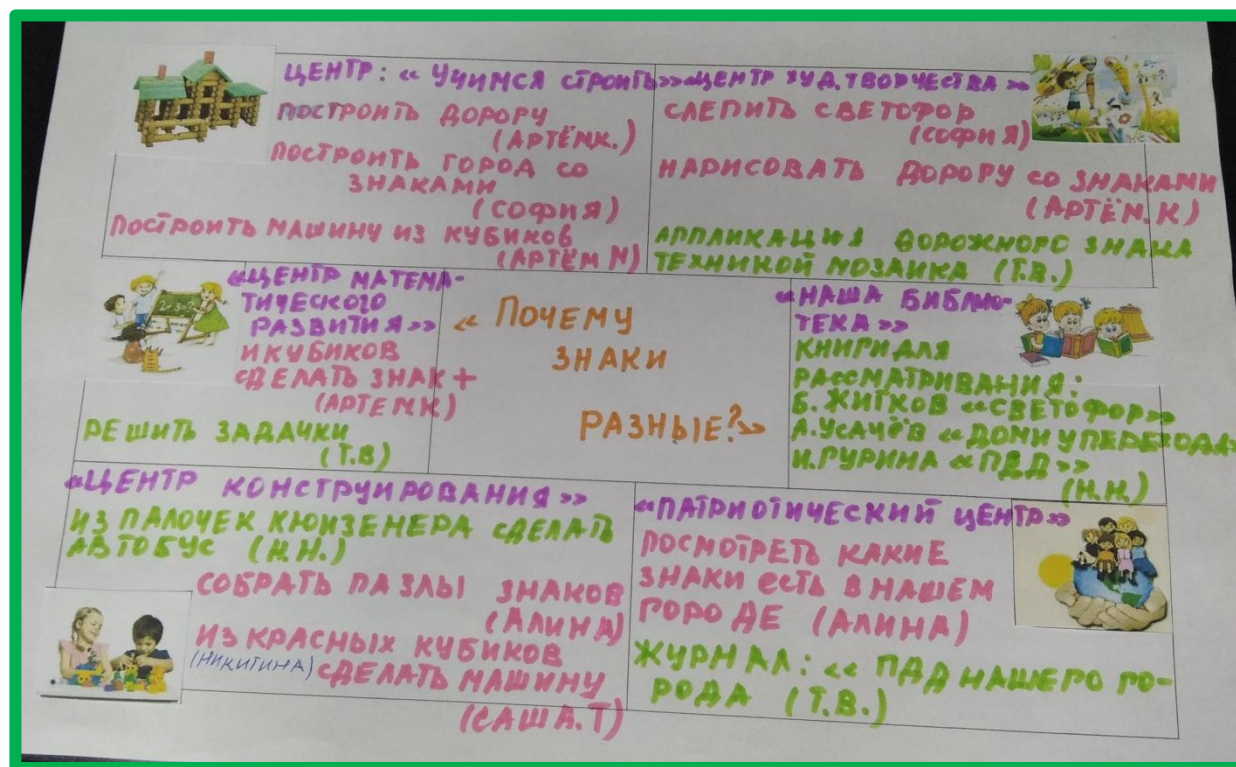 ЦЕНТР: « УЧИМСЯ СТРОИТЬ»
ПОСТРОИТЬ ДОРОРУ
(АРТЁМК.)
ПОСТРОИТЬ ГОРОД СО
ЗНАКАМИ
(СОФИЯ)
ПОСТРОИТЬ МАШИНУ ИЗ КУБИКОВ
(АРТЁМ М)
«ЦЕНТР ХУД. ТВОРЧЕСТВА»
СЛЕПИТЬ СВЕТОФОР
(СОФИЯ)
НАРИСОВАТЬ ДОРОРУ СО ЗНАКАМИ
(АРТЁМ.К)
АППЛИКАЦИЯ ДОРОЖНОГО ЗНАКА
ТЕХНИКОЙ МОЗАИКА (Т.В.)
«ЦЕНТР МАТЕМА-
ТИЧЕСКОГО
РАЗВИТИЯ»
И КУБИКОВ
СДЕЛАТЬ ЗНАК +
(АРТЕМК)
РЕШИТЬ ЗАДАЧКИ
(Т.В)
« ПОЧЕМУ
ЗНАКИ
РАЗНЫЕ?»
«НАША БИБЛИО-
ТЕКА»
КНИГИ ДЛЯ
РАССМАТРИВАНИЯ:
Б. ЖИТКОВ «СВЕТОФОР»
А.УСАЧЁВ «ДОМ У ПЕРЕХОДА»
И.ГУРИНА «ПДД»
(Н.Н.)
«ЦЕНТР КОНСТРУИРОВАНИЯ»
ИЗ ПАЛОЧЕК КЮИЗЕНЕРА СДЕЛАТЬ
АВТОБУС (Н.Н.)
СОБРАТЬ ПАЗЛЫ ЗНАКОВ
(АЛИНА)
ИЗ КРАСНЫХ КУБИКОВ
(НИКИТИНА) СДЕЛАТЬ МАШИНУ
(САША.Т)
«ПАТРИОТИЧЕСКИЙ ЦЕНТР»
ПОСМОТРЕТЬ КАКИЕ
ЗНАКИ ЕСТЬ В НАШЕМ
ГОРОДЕ (АЛИНА)
ЖУРНАЛ: « ПДД НАШЕГО ГО-
РОДА (Т.В.)